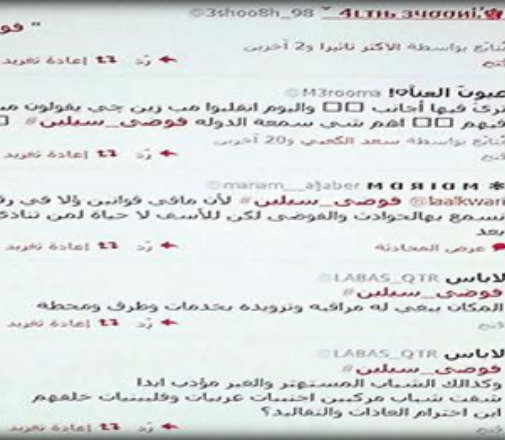 @3shoo8h_98
" فو
متابَع بواسطة الأكثر تأثيرا و2 آخرين
رد إعادة تغريد
عيون العنا!
@M3rooma
ترى فيها أجانب واليوم انقلبوا مب زين جي يقولون
فيهم اهم شي سمعه الدوله #فوضى_سيلين
متابَع بواسطة سعد الكعبي و20 آخرين
فتح رد إعادة تغريد
M α я ι α M
@mariam__aljaber
@laalkwari #فوضى_سيلين لأن مافي قوانين ولا في
نسمع بهالحوادث والفوضى لكن للأسف لا حياة لمن تنادي
بعد
عرض المحادثة رد إعادة تغريد
لاباس @LABAS_QTR
#فوضى_سيلين
المكان يبغي له مراقبه وتزويده بخدمات وطرق ومحطة
فتح رد إعادة تغريد
لاباس @LABAS_QTR
#فوضى_سيلين
وكذالك الشباب المستهتر والغير مؤدب ابدا
شفت شباب مركبين اجنبيات عربيات وفلبينيات خلفهم
اين احترام العادات والتقاليد؟
فتح رد إعادة تغريد